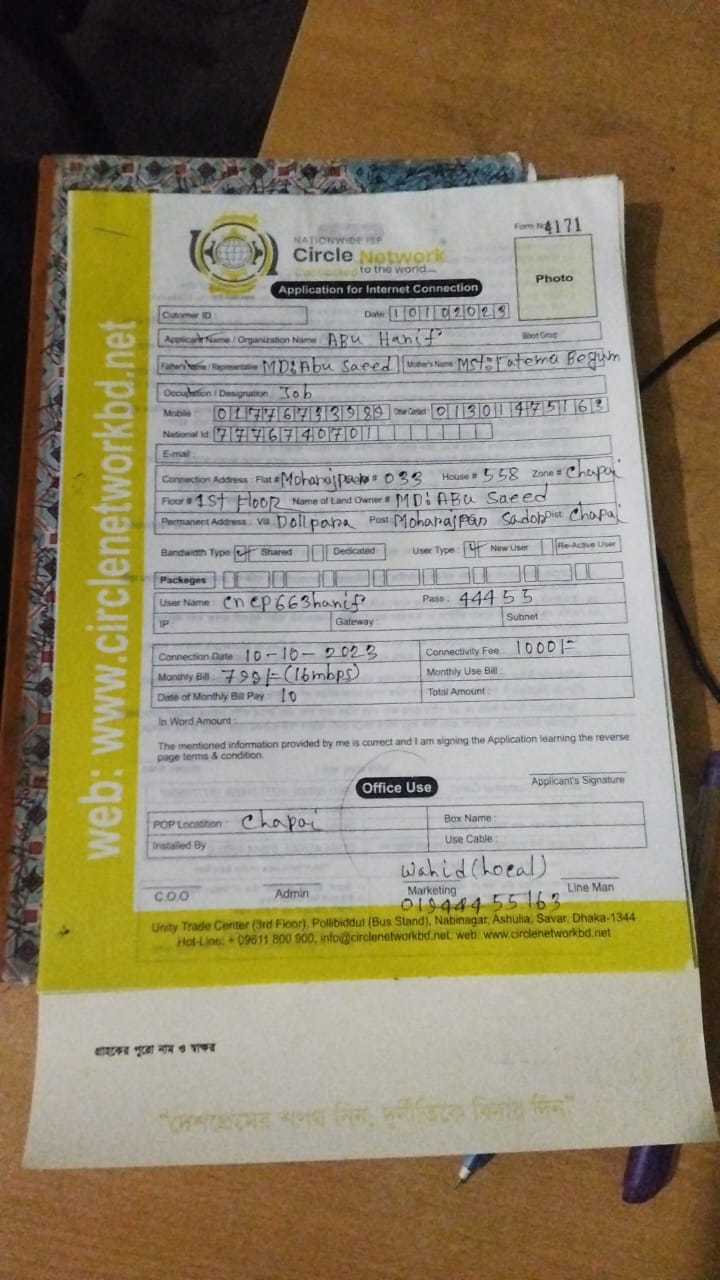 web: www.circlenetworkbd.net
Form № 4171
NATIONWIDE ISP
Circle Network
Connected to the world...
Photo
Application for Internet Connection
Cutomer ID :
Date: 10102023
Applicant Name / Organization Name : ABU Hanif Bloot Group
Father's Name / Representative MD: Abu Saeed Mother's Name Mst: Fatema Begum
Occupation / Designation : Job
Mobile Other Contact : 01301475163
National Id: 7776740701
E-mail :
Connection Address : Flat # # 033 House # 558 Zone # Chapai
Floor # 1st Floor Name of Land Owner # MD: ABU Saeed
Permanent Address : Vill Post Sador Dist: Chapai
Bandwidth Type : Shared Dedicated User Type : New User Re-Active User
Packages
User Name : cnep663hanif Pass : 44455
IP Gateway Subnet
Connection Date : 10-10-2023 Connectivity Fee : 1000/=
Monthly Bill : 799/= (16mbps) Monthly Use Bill :
Date of Monthly Bill Pay : 10 Total Amount :
In Word Amount :
The mentioned information provided by me is correct and I am signing the Application learning the reverse
page terms & condition.
Applicant's Signature
Office Use
POP Locatition : Chapai Box Name :
Installed By Use Cable :
Wahid (Local)
C.O.O Admin Marketing Line Man
Unity Trade Center (3rd Floor), Pollibiddut (Bus Stand), Nabinagar, Ashulia, Savar, Dhaka-1344
Hot-Line: + 09611 800 900, info@circlenetworkbd.net, web: www.circlenetworkbd.net
গ্রাহকের পুরো নাম ও স্বাক্ষর
"দেশপ্রেমের শপথ নিন, দুর্নীতিকে বিদায় দিন"